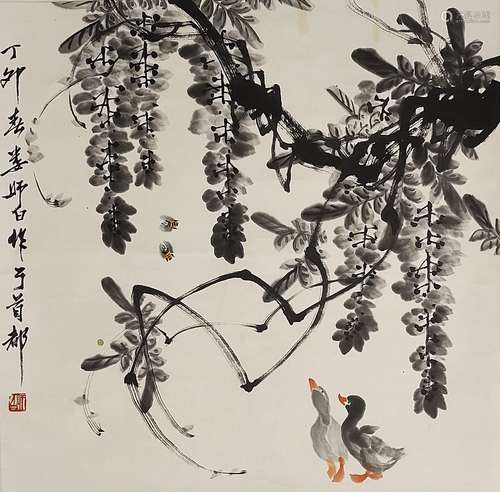 丁卯春娄师白作于首都